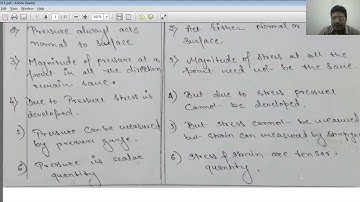 2) Pressure always acts
normal to surface
3) Magnitude of pressure at a
point in all the direction
remain same.
4) Due to Pressure stress is
developed.
5) Pressure can be measured
by pressure gauge.
6) Pressure is scalar
quantity
2) Act Either Normal or
surface.
3) Magnitude of stress at all the
point need not be the same.
4) But due to stress pressure
cannot be developed.
5) But stress cannot be measured
but strain can measured by
6) Stress & strain are tensor
quantity.